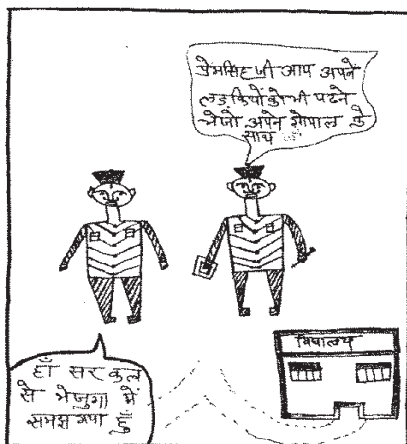 प्रेमसिह जी आप अपने
लड़कियों को भी पढने
भेजो अपने गोपाल के
साथ
विद्यालय
हाँ सर कल
से भेजुगा मे
समझ गया हुँ